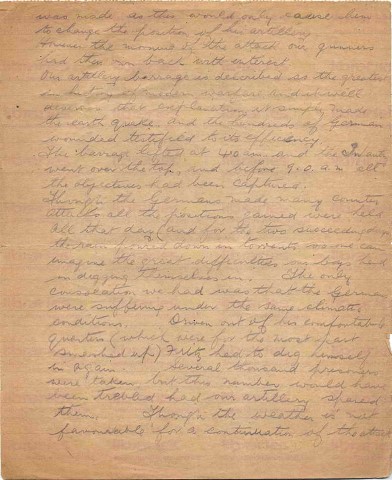 was made as this would only cause him
to change the position of his artillery
However the moment of the attack our gunners
had their own back with interest
Our artillery barrage is described as the greatest
in history of modern warfare and it well
deserves that explanation it simply made
the earth quake and the hundreds of German
wounded testified to its efficiency
The barrage started at 4 a.m. and the Infantry
went over the top, and before 9.0. a.m all
the objectives had been captured.
Though the Germans made many counter
attacks all the positions gained were held
All that day (and for the two succeeding days
the rain poured down in torrents so we can
imagine the great difficulties our boys had
in digging themselves in. The only
consolation we had was that the Germans
were suffering under the same climatic
conditions. Driven out of his comfortable
quarters (which were for the most part
smashed up) Fritz had to dig himself
in again. Several thousand prisoners
were taken but this number would have
been trebled had our artillery spared
them. Though the weather is not
favourable for a continuation of the attack